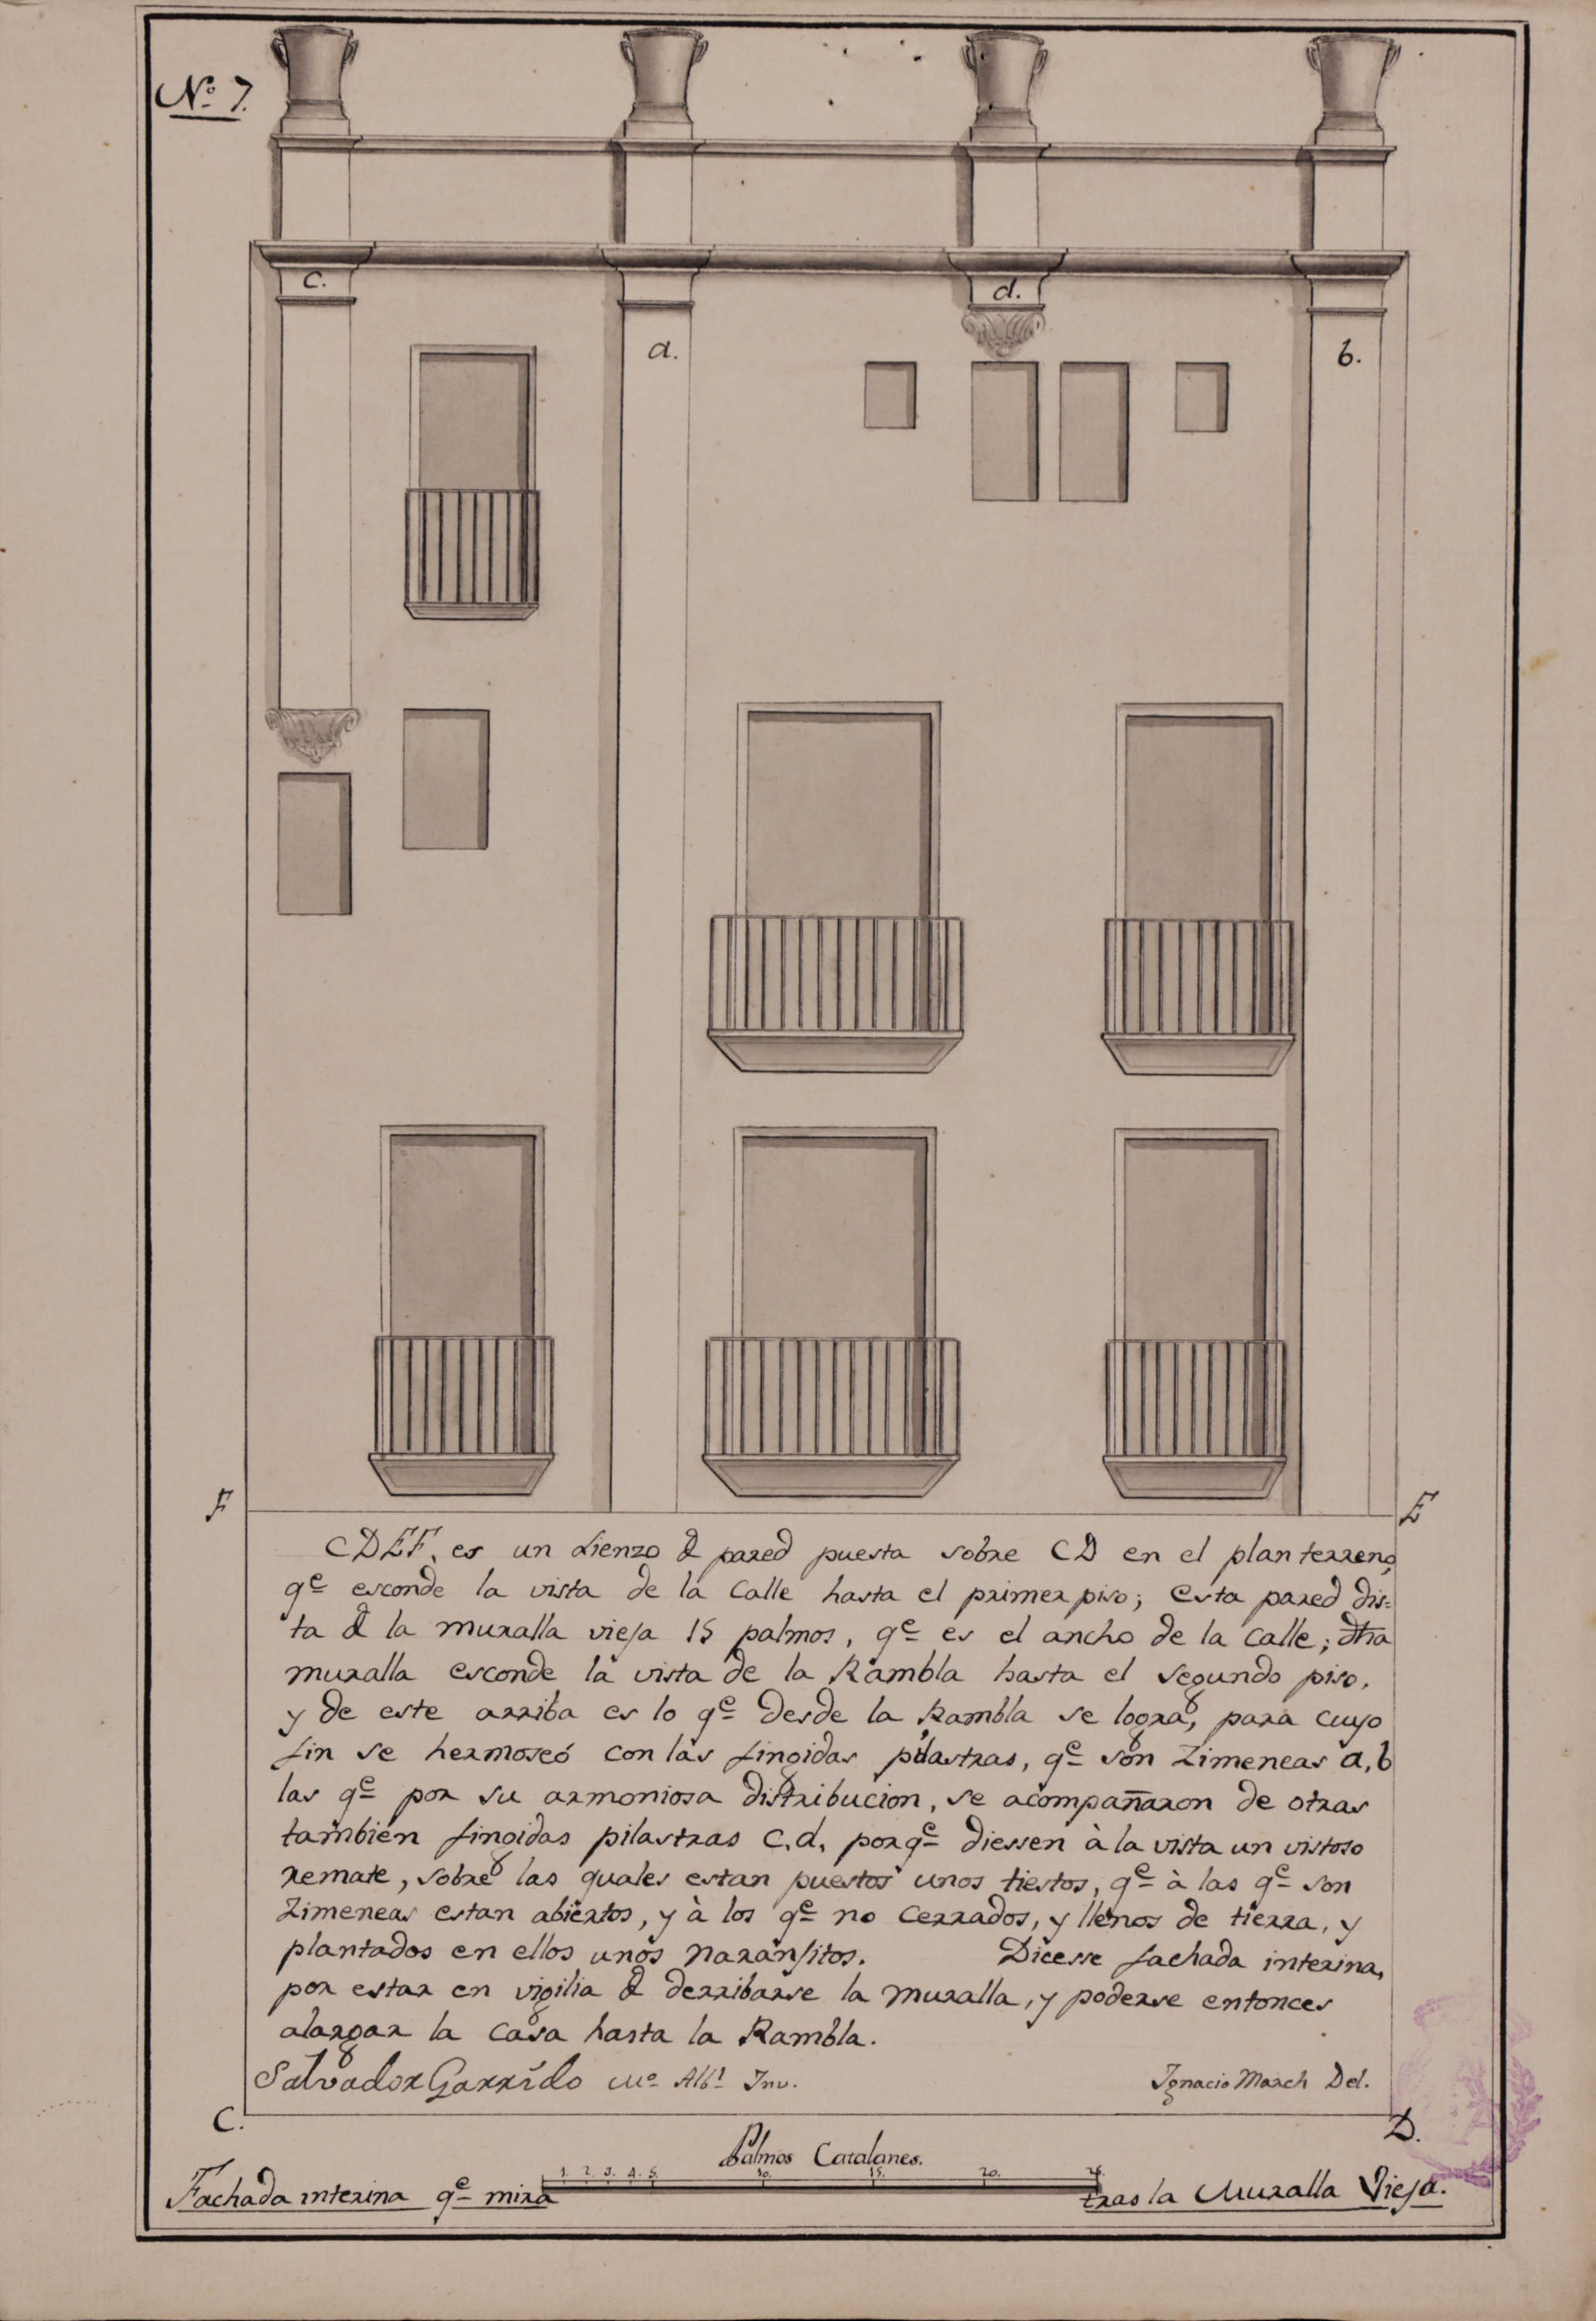 Nº 7.
c.
d.
a.
b.
F
E
CDEF, es un lienzo d pared puesta sobre CD en el plan terreno,
qe esconde la vista de la Calle hasta el primer piso; esta pared dis=
ta d la muralla vieja 15 palmos, qe es el ancho de la Calle; dha
muralla esconde la vista de la Rambla hasta el segundo piso,
y de este arriba es lo qe desde la Rambla se logra, para cuyo
fin se hermoseó con las fingidas pilastras, qe son Zimeneas a, b
las qe por su armoniosa distribucion, se acompañaron de otras
tambien fingidas pilastras C. d. porqe diessen à la vista un vistoso
remate, sobre las quales estan puestos unos tiestos, qe à las qe son
Zimeneas estan abiertos, y à los qe no Cerrados, y llenos de tierra, y
plantados en ellos unos naranjitos. Dicesse fachada interina,
por estar en vigilia d derribarse la muralla, y poderse entonces
alargar la Casa hasta la Rambla.
Salvador Garrído Mo Albl Inv. Ignacio March Del.
C. D.
Palmos Catalanes.
1. 2. 3. 4. 5. 10. 15. 20. 25.
Fachada interina qe mira tras la Muralla Vieja.